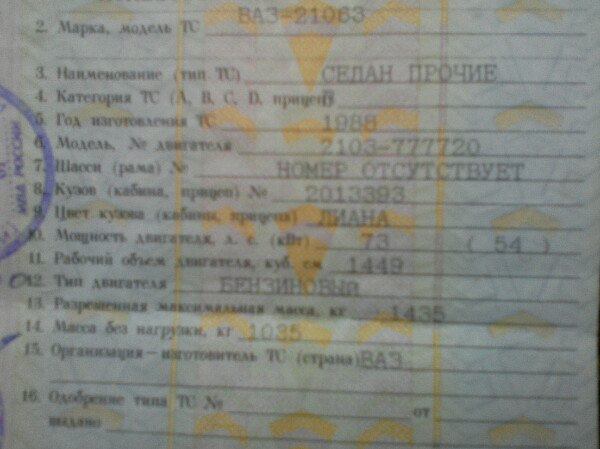 2. Марка, модель ТС ВАЗ-21063
3. Наименование (тип ТС) СЕДАН ПРОЧИЕ
4. Категория ТС (А, В, С, D, прицеп) В
5. Год изготовления ТС 1988
6. Модель, № двигателя 2103-777720
7. Шасси (рама) № НОМЕР ОТСУТСТВУЕТ
8. Кузов (кабина, прицеп) № 2013393
9. Цвет кузова (кабины, прицепа) ЛИАНА
10. Мощность двигателя, л. с. (кВт) 73 ( 54 )
11. Рабочий объем двигателя, куб. см 1449
12. Тип двигателя БЕНЗИНОВЫй
13. Разрешенная максимальная масса, кг 1435
14. Масса без нагрузки, кг 1035
15. Организация — изготовитель ТС (страна) ВАЗ
16. Одобрение типа ТС № от
выдано